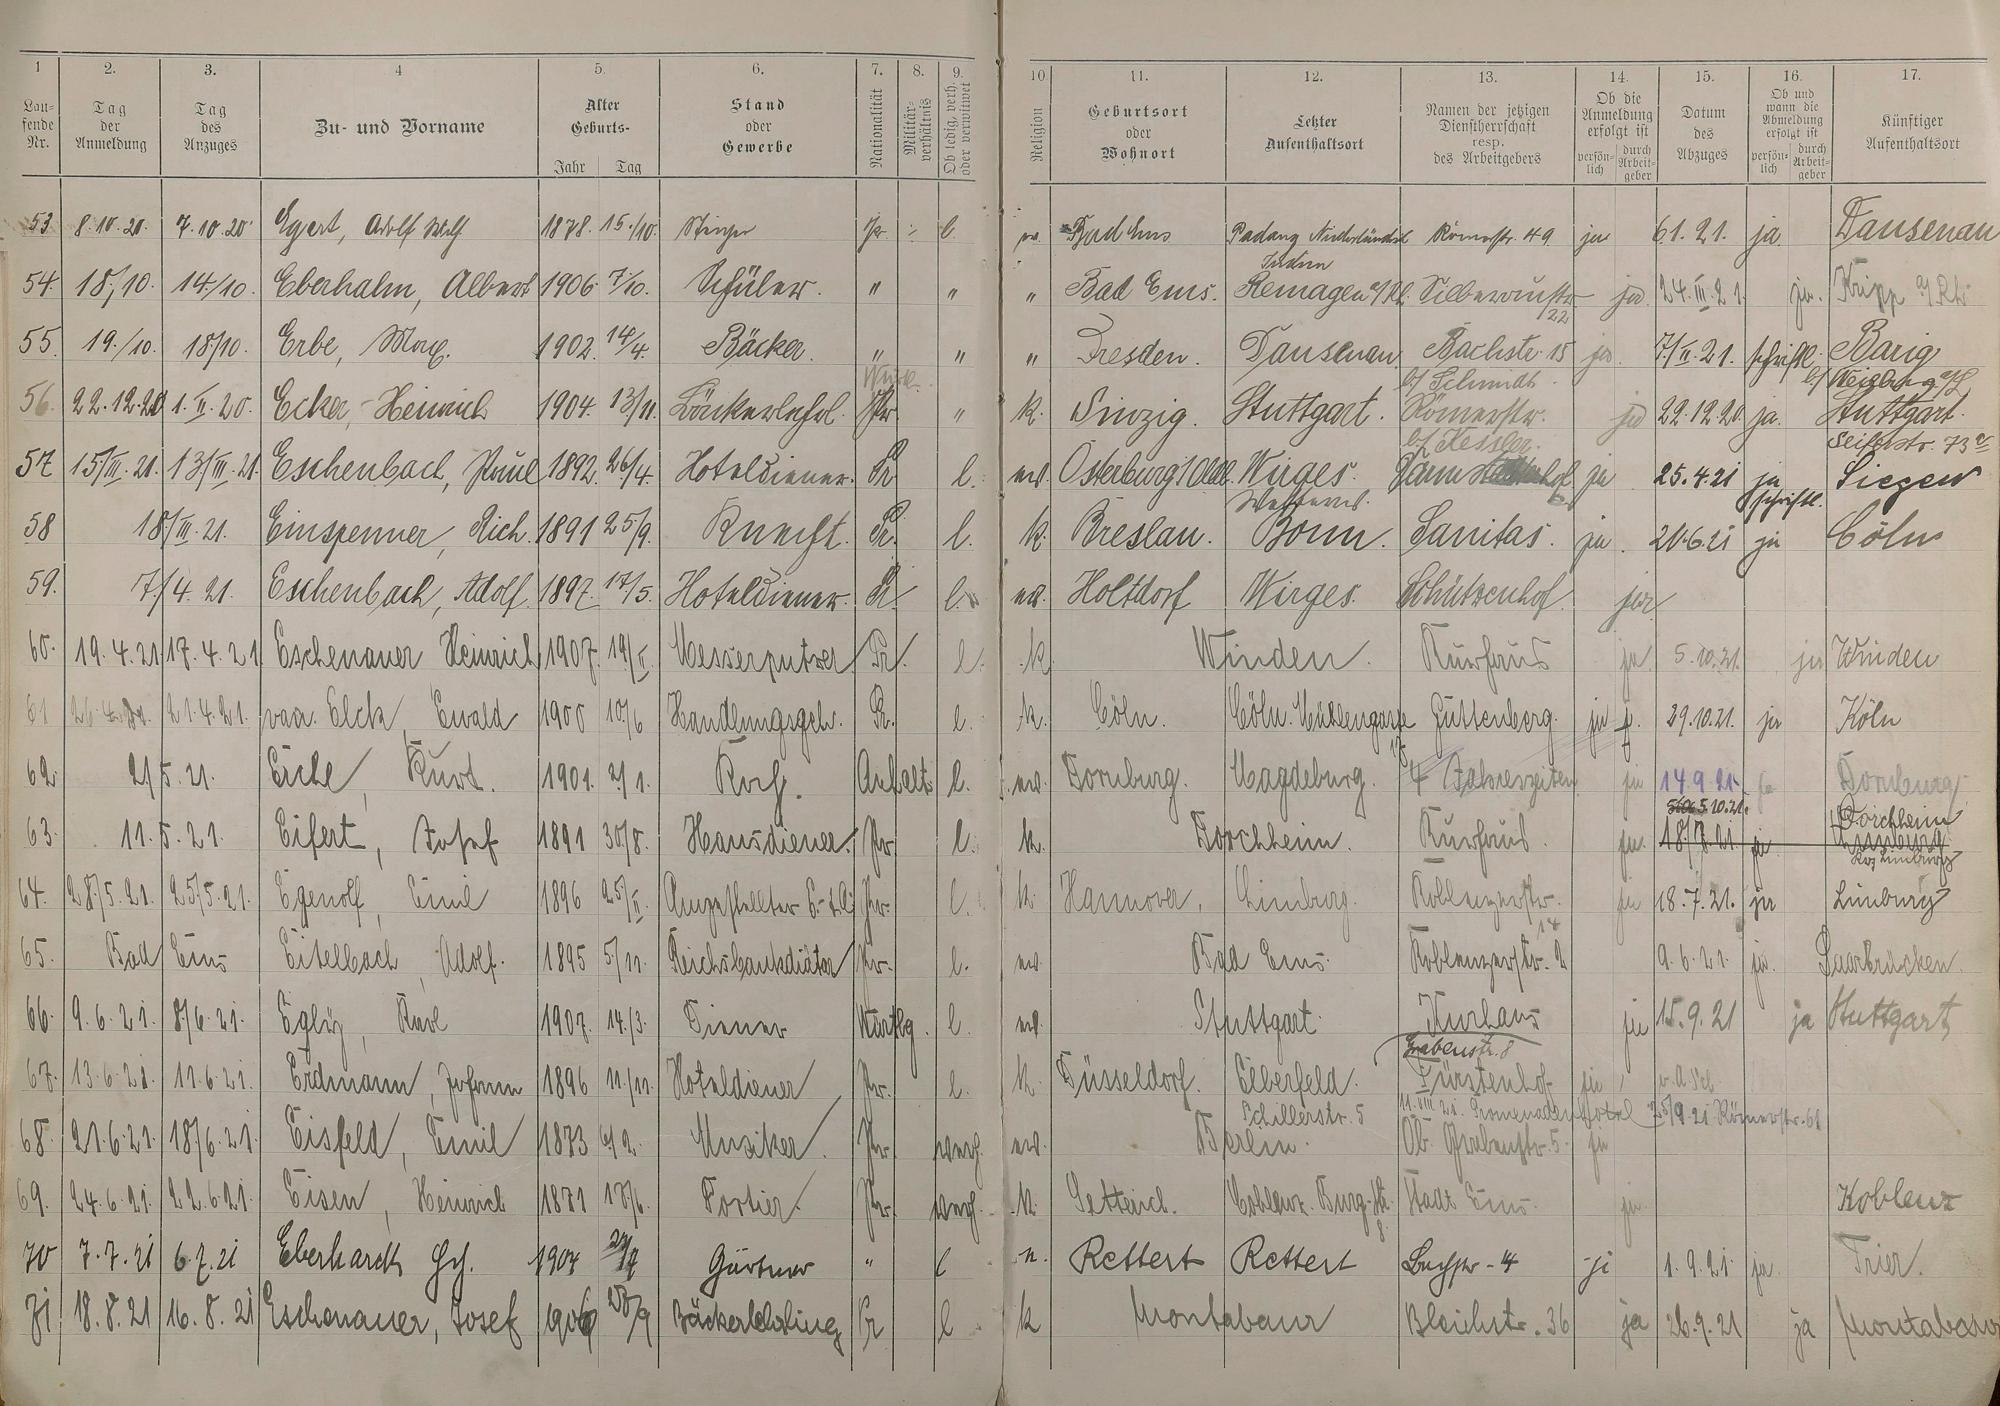 1 2. 3. 4 5. 6. 7. 8. 9. 10. 11. 12. 13. 14. 15. 16. 17.
Lau-fende Nr. Tag der Anmeldung Tag des Anzuges Zu- und Vorname Alter Geburts- Jahr Tag Stand oder Gewerbe Nationalität Militär-verhältnis Ob ledig, verh. oder verwitwet Religion Geburtsort oder Wohnort Letzter Aufenthaltsort Namen der jetzigen Dienstherrschaft resp. des Arbeitgebers Ob die Anmeldung erfolgt ist persön-lich durch Arbeit-geber Datum des Abzuges Ob und wann die Abmeldung erfolgt ist persön-lich durch Arbeit-geber Künftiger Aufenthaltsort
53 8.10.20. 7.10.20 Egert, Adolf 1878. 15./10. Pr. l. Bad Ems Padang Niederländisch Indien Römerstr. 49 ja 6.1.21. ja Dausenau
54. 18./10. 14./10. Eberhahn, Albert 1906 7/10. Schüler. " " " Bad Ems. Remagen a/Rh. Silberaustr. 22 ja 24.III.21. ja. Kripp a/Rh.
55. 19./10. 18/10. Erbe, Max. 1902. 14/4. Bäcker. " " " Dresden. Dausenau Bachstr. 15 ja 7/II.21. schriftl. Barig
b/ Schmidt b/ Weilburg a/L
56. 22.12.20 1.II.20. Ecker, Heinrich 1904. 13/11. Pr " k. Sinzig. Stuttgart. Römerstr. ja 22.12.20. ja. Stuttgart.
b/ Kessler. Seifelstr. 73
57 15/III.21. 13/III.21. Eschenbach, Paul 1892. 26/4. Hoteldiener. Pr l. ev. Osterburg Wirges Westerwd. ja 25.4.21 ja schriftl. Siegen
58 18/III.21. Einspenner, Rich. 1891 25/9. Knecht. Pr. l. k. Breslau. Bonn. Sanitas. ja. 20.6.21 ja Cöln
59. 7/4.21. Eschenbach, Adolf. 1897. 17/5. Hoteldiener. Pr. l. ev. Holtdorf Wirges. Schützenhof. ja
60. 19.4.21 17.4.21 Eschenauer Heinrich 1907. 19/II. Messerputzer Pr. l. k. Winden. Kurhaus ja. 5.10.21. ja Winden
61 21.4.21. van Elck, Ewald 1900 10/6 Handlungsgeh. Pr. l. k. Cöln. Cöln. Mühlengasse 17 Guttenberg. ja 29.10.21. ja Köln
62 2/5.21. Eiche, Kurt. 1901. 2/1. Koch. Anhalt l. ev. Dornburg. Magdeburg. 4 Jahreszeiten ja 14.9.21. ja Dornburg
63. 11.5.21. Eifert, Josef 1891 30/8. Hausdiener. Pr l. k. Dorchheim. Kurhaus. ja. 5.10.21. 18/7.21. ja Dorchheim Limburg
64. 28/5.21. 25/5.21. Egenolf, Emil 1896 25/II. Angestellter Pr. l. k. Hannover, Limburg. Koblenzerstr. 14 ja 18.7.21. ja Limburg
65. Bad Ems Eitelbach, Adolf. 1895 5/11. Reichsbankdiätar Pr. l. ev. Bad Ems. Koblenzerstr. 2 9.6.21. ja. Saarbrücken.
66. 9.6.21. 8/6.21. Egly, Karl 1907. 14./3. Diener Württbg. l. ev. Stuttgart. Kurhaus ja 15.9.21 ja Stuttgart
Grabenstr. 8
67. 13.6.21. 11.6.21. Erdmann, Johann 1896 11./11. Hoteldiener Pr. l. k. Düsseldorf. Elberfeld. Schillerstr. 5 Fürstenhof ja
11.VIII.21. Promenadenhotel 25/9.21 Römerstr. 61
68. 21.6.21. 18/6.21. Eisfeld, Emil 1873 6/2. Musiker. Pr. verh. ev. Berlin. Ob. Grabenstr. 5. ja
69. 24.6.21. 22.6.21. Eisen, Heinrich 1871 13/6. Portier. Pr. verh. k. Setterich. Coblenz. Burg-Str. 8. Stadt Ems. ja. Koblenz
70 7.7.21 6.7.21 Eberhardt 1904 Gärtner " l Rettert Rettert Bachstr - 4 ja 1.9.21. ja. Trier.
71 18.8.21 16.8.21 Eschenauer, Josef 1906 28/9 Bäckerlehrling Pr l k Montabaur Bleichstr. 36 ja 26.9.21 ja Montabaur